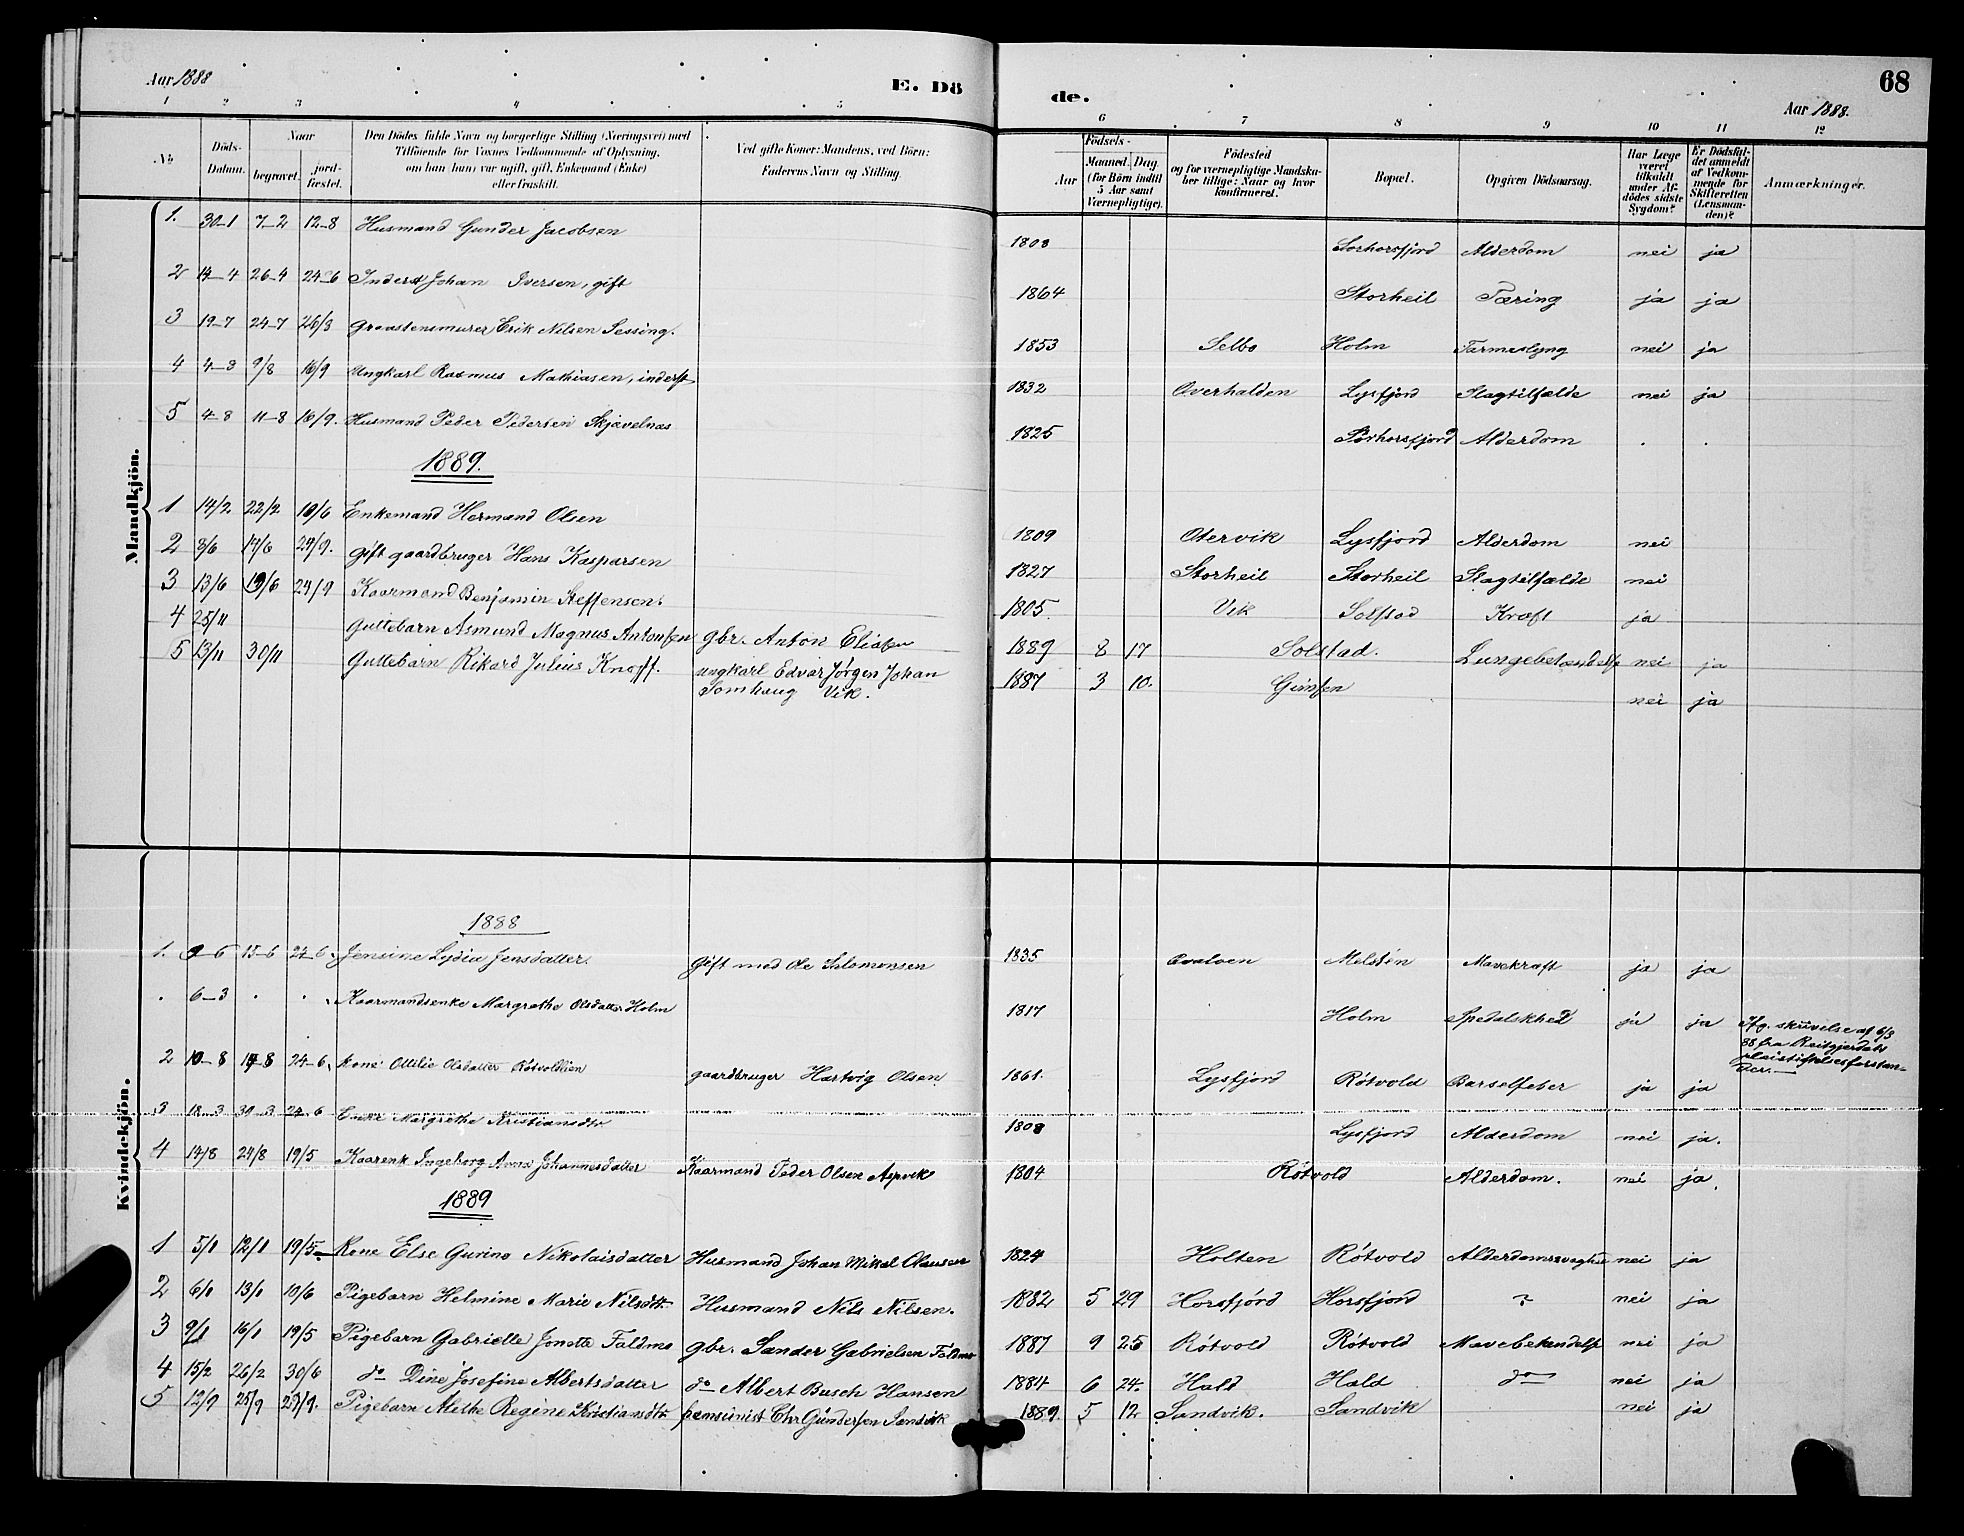 Aar 1888
E. Dö
de.
68
Aar 1888.
1 2 3 4 5 6 7 8 9 10 11 12
No
Döds-
Datum.
Naar
begravet.
jord-
fæstet.
Den Dödes fulde Navn og borgerlige Stilling (Næringsvei) med
Tilföiende for Voxnes Vedkommende af Oplysning,
om han (hun) var ugift, gift, Enkemand (Enke)
eller fraskilt.
Ved gifte Koner: Mandens, ved Börn:
Faderens Navn og Stilling.
Födsels-
Aar
Maaned. Dag.
(for Börn indtil
5 Aar samt
Værnepligtige).
Födested
og for værnepligtige Mandska-
ber tillige: Naar og hvor
konfirmeret.
Bopæl.
Opgiven Dödsaarsag.
Har Læge
været
tilkaldt
under Af-
dödes sidste
Sygdom?
Er Dödsfal-
det anmeldt
af Vedkom-
mende for
Skifteretten
(Lensman-
den)?
Anmærkninger.
Mandkjön.
1. 30-1 7-2 12-8 Husmand Gunder Jacobsen 1808 Sorhorsfjord Alderdom nei ja
2 14-4 26-4 24-6 Inderst Johan Iversen, gift 1864 Storheil Tæring ja ja
3 19-7 24-7 26/3 Graastensmurer Erik Nilsen Sessing. 1853 Selbo Holm Tarmeslyng nei ja
4 4-8 9/8 16/9 Ungkarl Rasmus Mathiasen, inderst 1832 Overhalden Lysfjord Slagtilfælde nei ja
5 4-8 11-8 16/9. Husmand Peder Pedersen Skjævelnæs 1825 Sørhorsfjord Alderdom . .
1889.
1 14/2 22/2 10/6 Enkemand Hermand Olsen 1809 Otervik Lysfjord Alderdom nei
2 3/6 14/6 29/9. gift gaardbruger Hans Kasparsen 1827 Storheil Storheil Slagtilfælde nei
3 13/6 19/6 24/9 Kaarmand Benjamin Steffensen. 1805 Vik Solstad Kræft ja
4 25/11 Guttebarn Asmund Magnus Antonsen gbr. Anton Eliasen 1889 8 17 Solstad. Lungebetændelse nei ja
5 23/11 30/11 Guttebarn Rikard Julius Knoff. ungkarl Edvar Jørgen Johan
Somhaug Vik. 1887 3 10. Gimsen nei ja
Kvindekjön.
1888
1. 9-6 15-6 24-6 Jensine Lydia Jensdatter. Gift med Ole Salomonsen 1835 Melstén Mavekræft ja ja
. 6-3 . . Kaarmandsenke Margrethe Olsdatter Holm 1817 Holm Spedalskhed ja ja Ifg. skrivelse af 6/3
88 fra Reitgjerdets
pleistiftelsesforstan-
der.
2 10-8 14-8 24-6. Kone Ottilie Olsdatter Røtvoldlien gaardbruger Hartvig Olsen 1861. Lysfjord Røtvold Barselfeber ja ja
3 18-3 30-3 24-6 Enke Margrethe Kristiansdtr 1808 Lysfjord Alderdom nei ja.
4 14/8 24/8 19/5 Kaarenk Ingeborg Anna Johannesdatter Kaarmand Peder Olsen Aspvik 1804 Røtvold Alderdom. nei ja.
1889
1 5/1 12/1 19/5 Kone Else Gurine Nikolaisdatter Husmand Johan Mikal Olausen 1824 Holten Røtvold Alderdomssvaghed nei ja
2 6/1 13/1 10/6 Pigebarn Helmine Marie Nilsdtr Husmand Nils Nilsen. 1882 5 29 Horsfjord Horsfjord ? nei ja
3 9/1 16/1 19/5 Pigebarn Gabrielle Jonette Faldmo gbr. Sander Gabrielsen Faldmo 1887 9 25 Røtvold Røtvold Mavebetændelse nei ja
4 15/2 26/2 30/6 do Dine Josefine Albertsdatter do Albert Busch Hansen 1884 6 24. Hald Hald do nei ja
5 12/9 25/9 29/9. Pigebarn Alethe Regine Kristiansdtr pensionist Chr Gundersen Sandvik 1889. 5 12 Sandvik. Sandvik nei ja